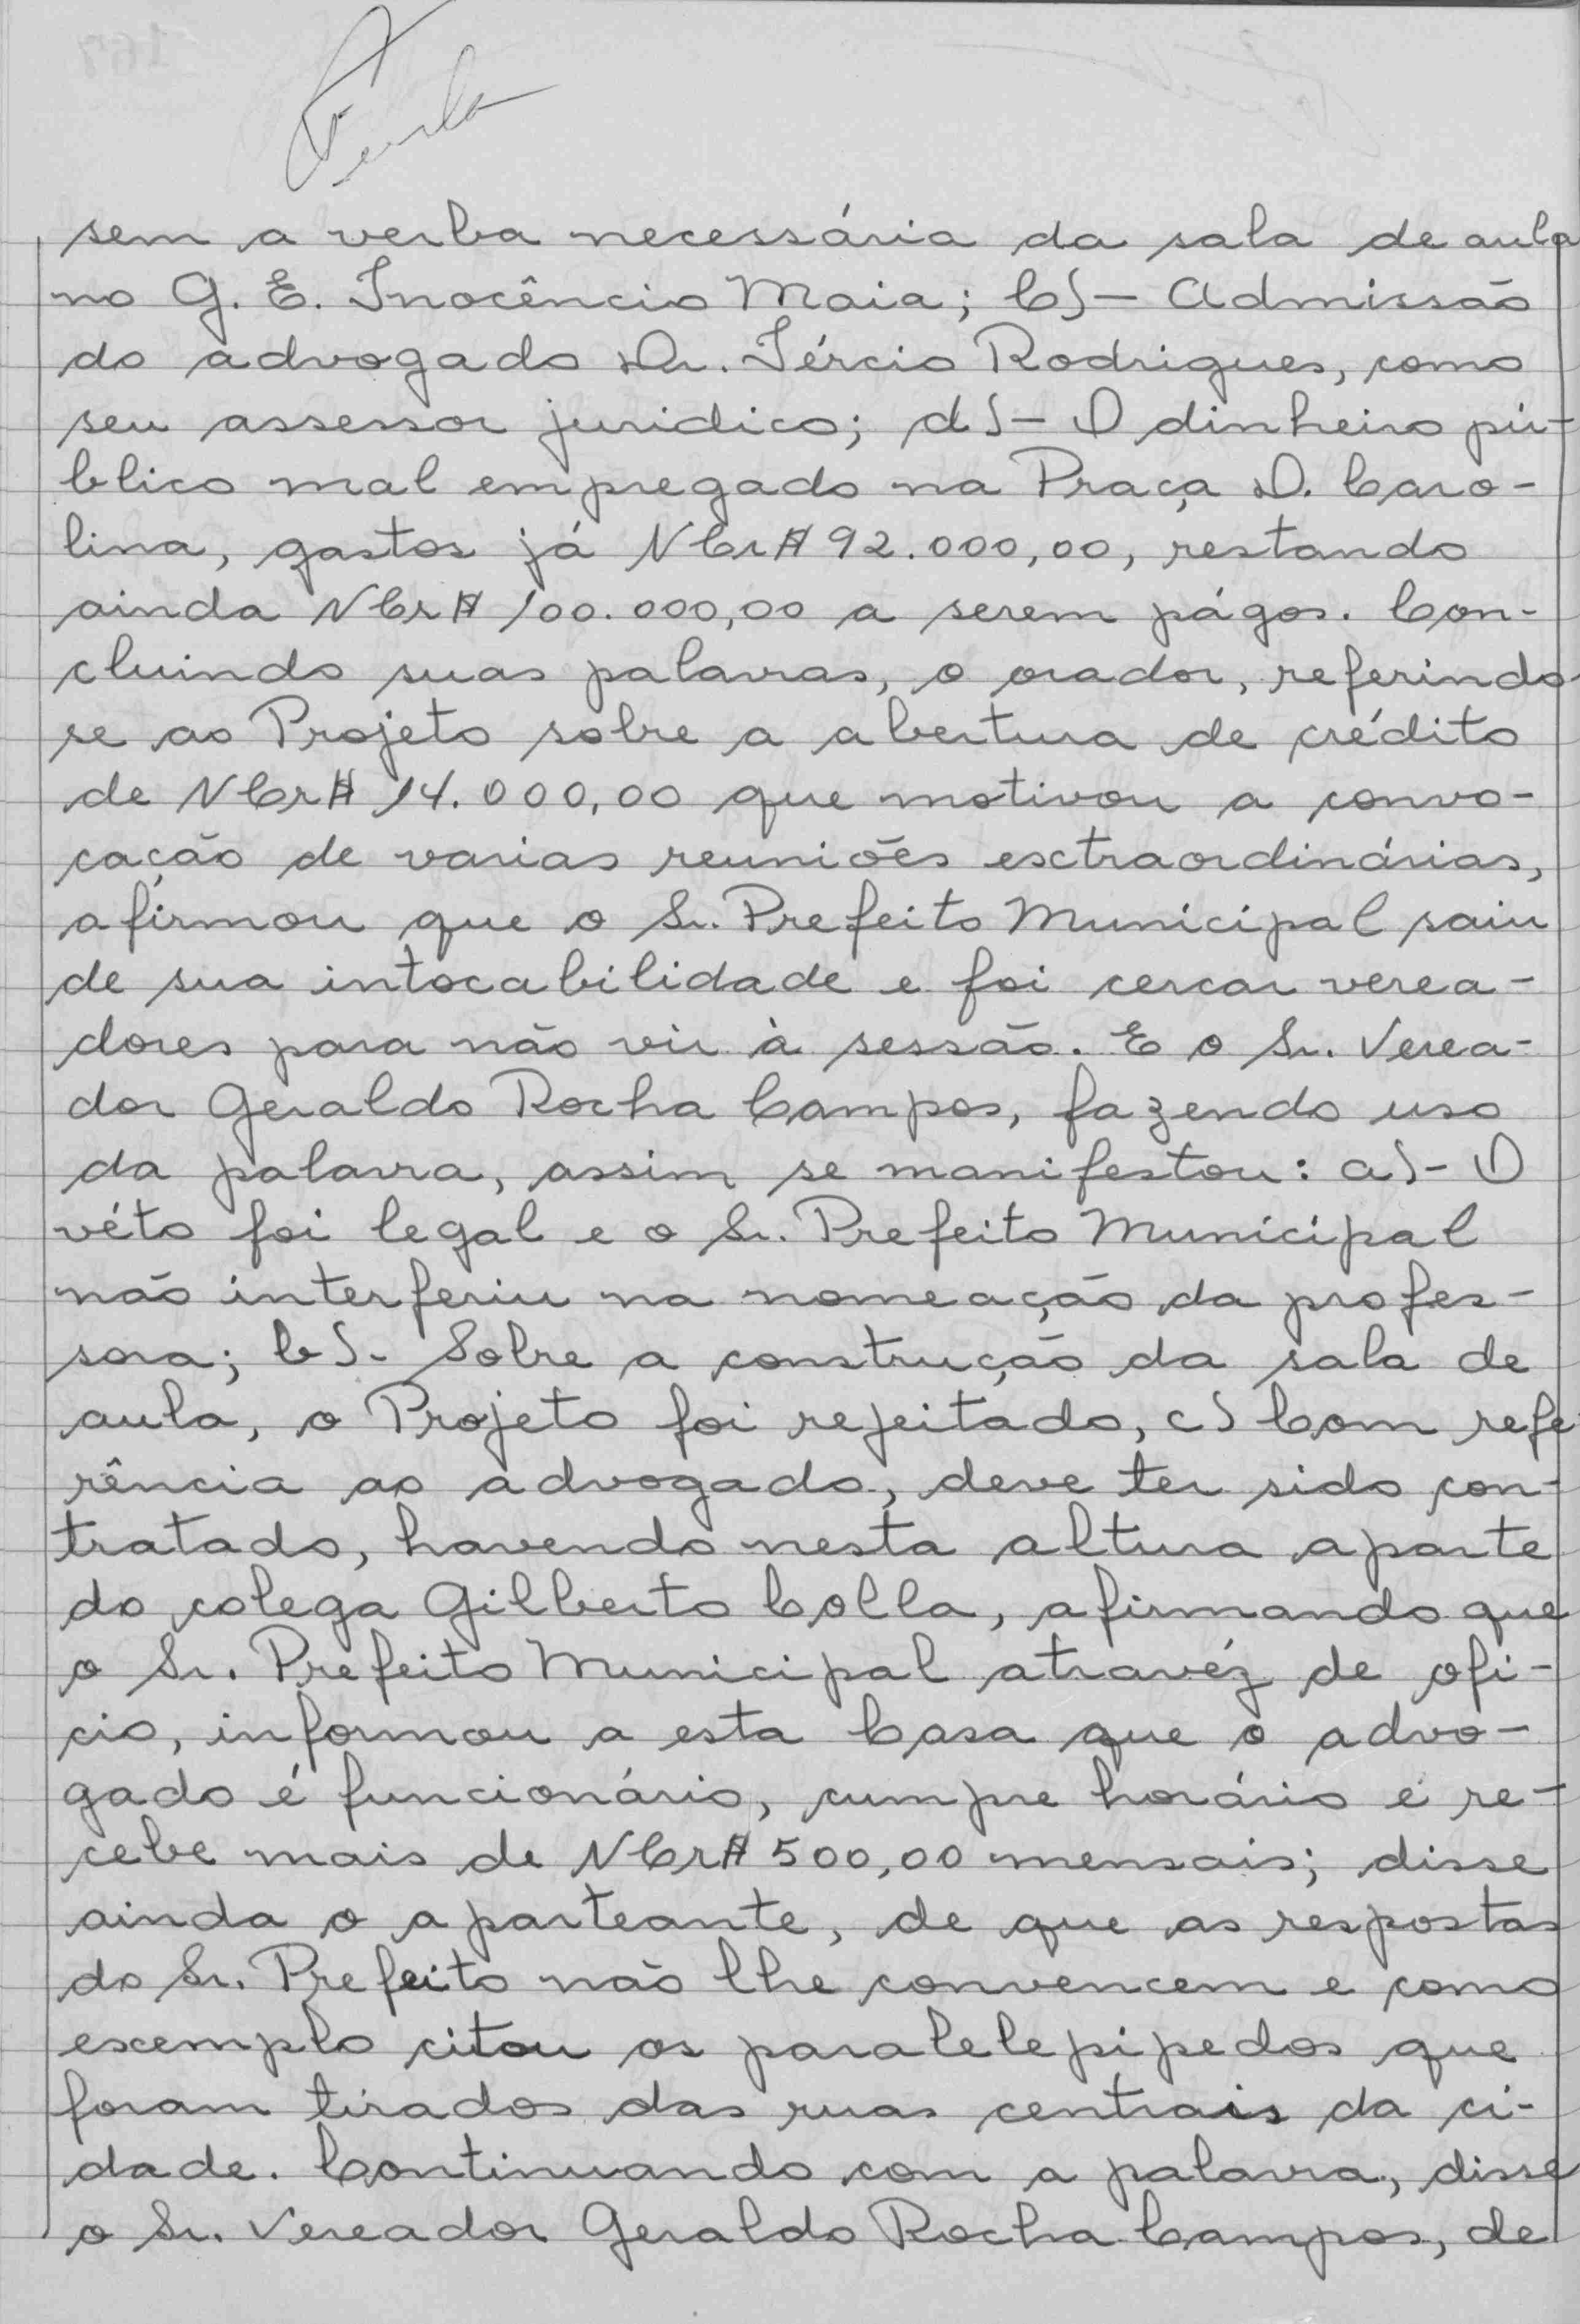 sem a verba necessária da sala de aula
no G. E. Inocêncio Maia; c)- Admissão
do advogado Dr. Tércio Rodrigues, como
seu assessor juridico; d)- O dinheiro pú-
blico mal empregado na Praça D. Caro-
lina, gastos já NCr$ 92.000,00, restando
ainda NCr$ 100.000,00 a serem págos. Con-
cluindo suas palavras, o orador, referindo-
se ao Projeto sobre a abertura de crédito
de NCr$ 14.000,00 que motivou a convo-
cação de varias reuniões extraordinárias,
afirmou que o Sr. Prefeito Municipal saiu
de sua intocabilidade e foi cercar verea-
dores para não vir à sessão. E o Sr. Verea-
dor Geraldo Rocha Campos, fazendo uso
da palavra, assim se manifestou: a)- O
véto foi legal e o Sr. Prefeito Municipal
não interferiu na nomeação da profes-
sora; b)- Sobre a construção da sala de
aula, o Projeto foi rejeitado, c) Com refe
rência ao advogado, deve ter sido con-
tratado, havendo nesta altura aparte
do colega Gilberto Colla, afirmando que
o Sr. Prefeito Municipal atravéz de ofi-
cio, informou a esta Casa que o advo-
gado é funcionário, cumpre horário e re-
cebe mais de NCr$ 500,00 mensais; disse
ainda o aparteante, de que as respostas
do Sr. Prefeito não lhe convencem e como
exemplo citou os paralelepipedos que
foram tirados das ruas centrais da ci-
dade. Continuando com a palavra, disse
o Sr. Vereador Geraldo Rocha Campos, de